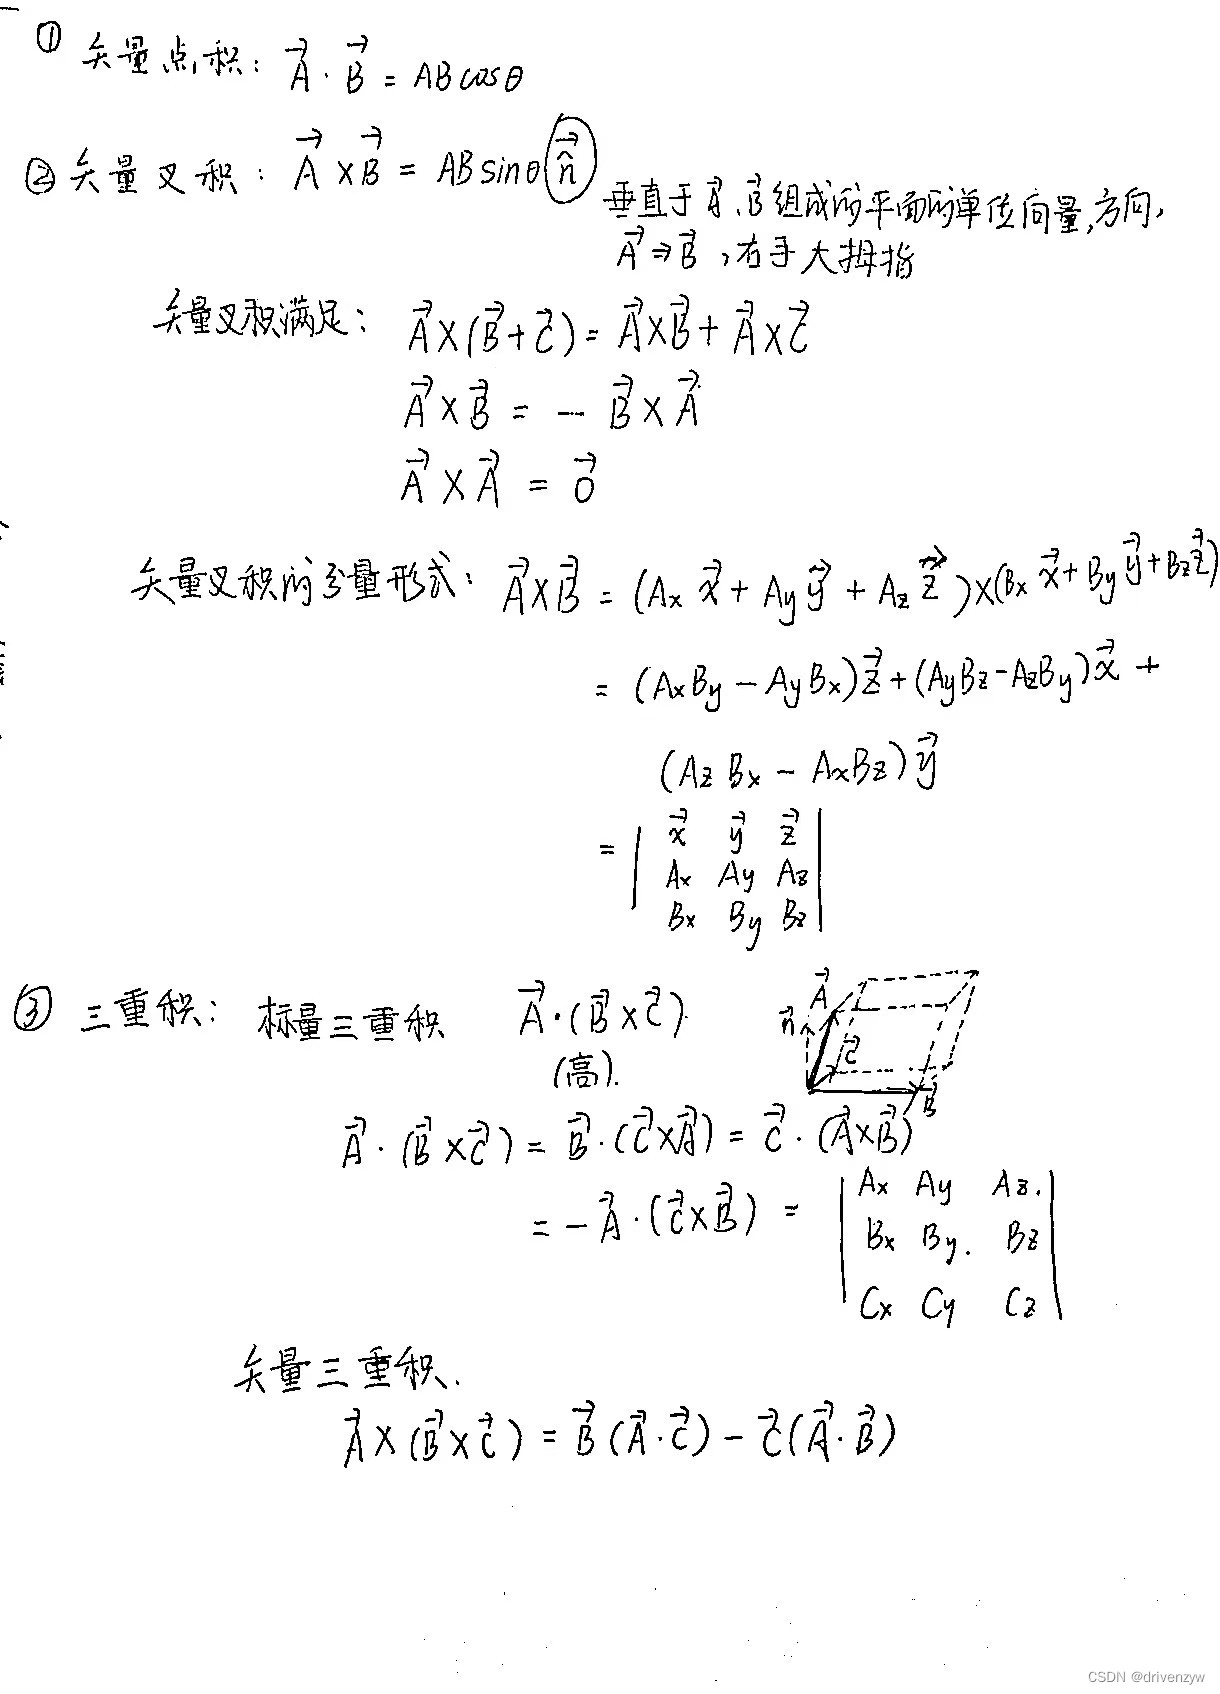 ① 矢量点积: A⃗·B⃗ = ABcosθ
② 矢量叉积: A⃗×B⃗ = ABsinθ n̂⃗
垂直于A⃗、B⃗组成的平面的单位向量,方向,
A⃗⇒B⃗,右手大拇指
矢量叉积满足: A⃗×(B⃗+C⃗)=A⃗×B⃗+A⃗×C⃗
A⃗×B⃗ = -B⃗×A⃗
A⃗×A⃗ = 0⃗
矢量叉积的分量形式: A⃗×B⃗ = (Ax x⃗+Ay y⃗+Az z⃗)×(Bx x⃗+By y⃗+Bz z⃗)
= (AxBy-AyBx)z⃗+(AyBz-AzBy)x⃗+
(AzBx-AxBz)y⃗
= | x⃗ y⃗ z⃗ |
| Ax Ay Az |
| Bx By Bz |
③ 三重积: 标量三重积 A⃗·(B⃗×C⃗).
(高).
A⃗
n⃗
C⃗
B⃗
A⃗·(B⃗×C⃗)=B⃗·(C⃗×A⃗)=C⃗·(A⃗×B⃗)
=-A⃗·(C⃗×B⃗) = | Ax Ay Az. |
| Bx By. Bz |
| Cx Cy Cz |
矢量三重积.
A⃗×(B⃗×C⃗)=B⃗(A⃗·C⃗)-C⃗(A⃗·B⃗)
CSDN @drivenzyw